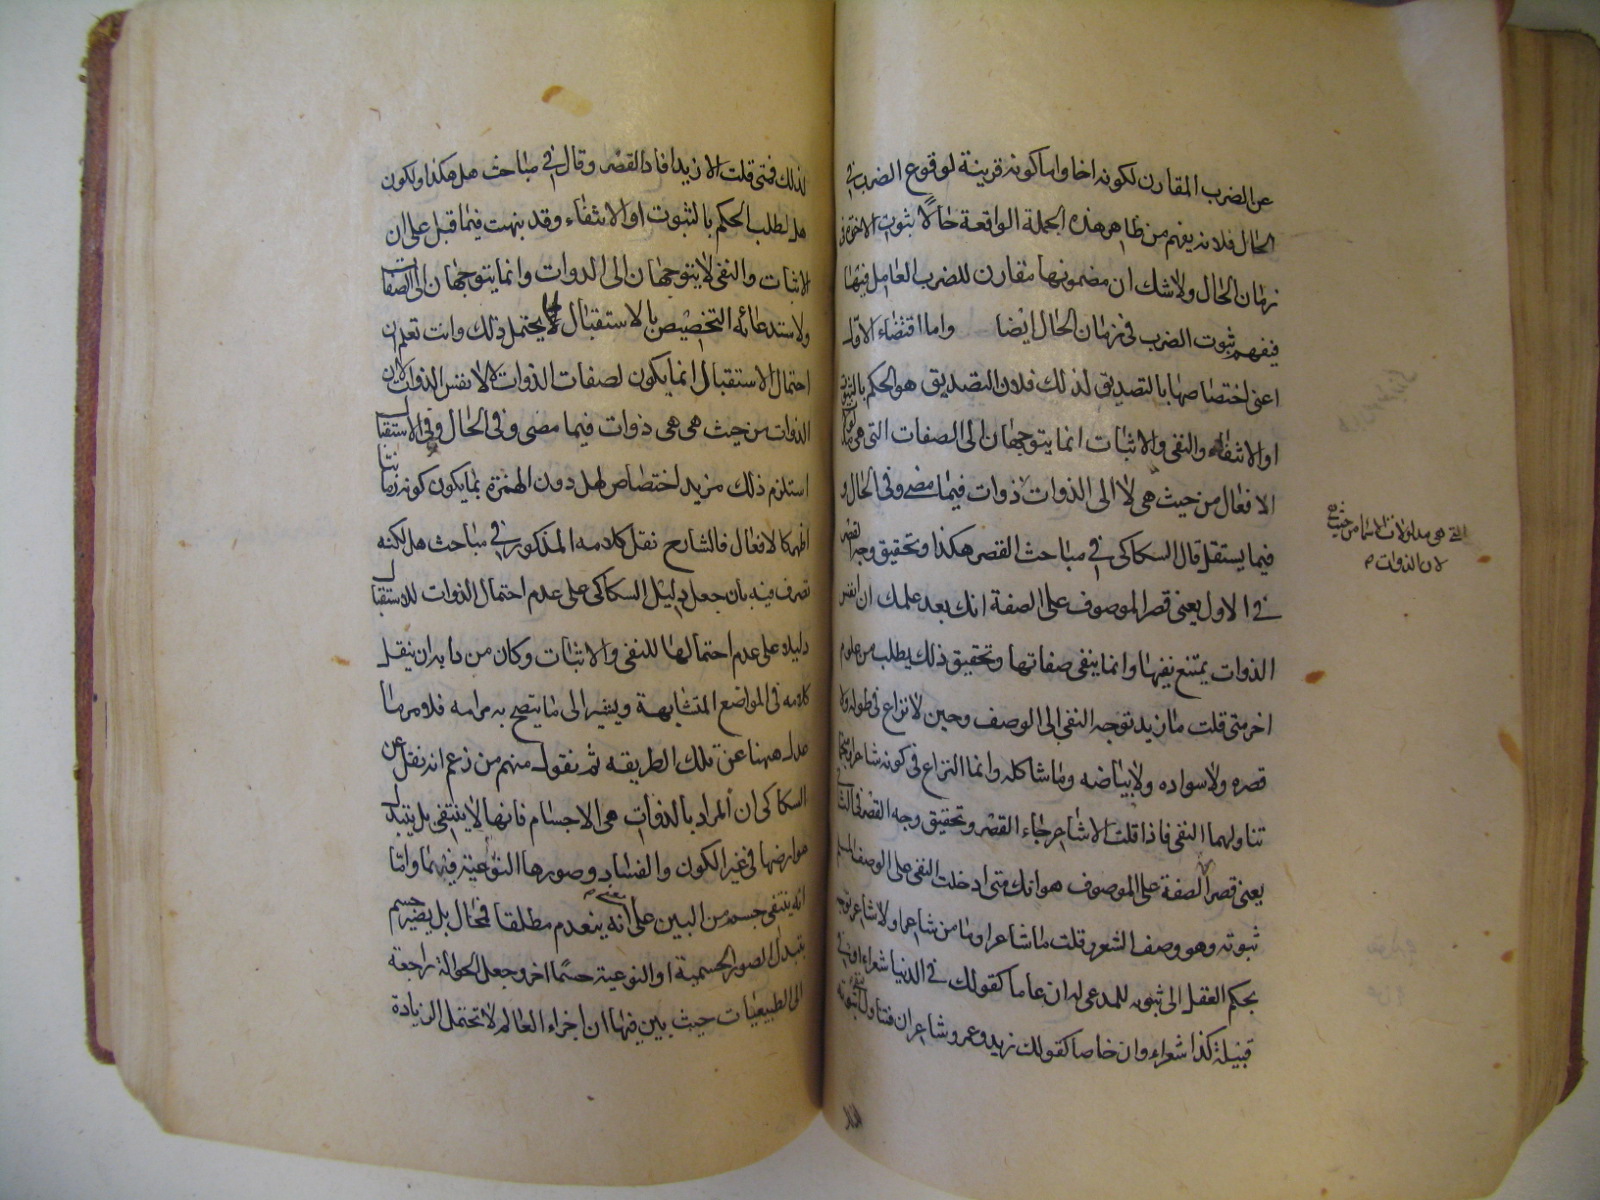 عن الضرب المقارن لكونه اخا واما كونه قرينة لوقوع الضرب في
الحال فلانه يفهم من ظاهر هذه الجملة الواقعة حالا ثبوت الاخوة في
زمان الحال ولا شك ان مضمونها مقارن للضرب العامل فيها
فيفهم ثبوت الضرب في زمان الحال ايضا واما اقتضاء الاول
اعنى اختصاصها بالتصديق لذلك فلان التصديق هو الحكم بالثبوت
او الانتفاء والنفى والاثبات انما يتوجهان الى الصفات التى هى
الافعال من حيث هى لا الى الذوات ذوات فيما مضى وفى الحال و
فيما يستقبل قال السكاكى فى مباحث القصر هكذا وتحقيق وجه القصر
فى الاول يعنى قصر الموصوف على الصفة انك بعد علمك ان انفس
الذوات يمتنع نفيها وانما ينفى صفاتها وتحقيق ذلك يطلب من علوم
اخر متى قلت ما زيد توجه النفى الى الوصف وحين لا نزاع فى طوله ولا
قصره ولا سواده ولا بياضه وما شاكله وانما النزاع فى كونه شاعرا او منجما
تناولهما النفى فاذا قلت الا شاعر جاء القصر وتحقيق وجه القصر فى الثانى
يعنى قصر الصفة على الموصوف هو انك متى ادخلت النفى على الوصف المسلم
ثبوته وهو وصف الشعر وقلت ما شاعر او ما من شاعر او لا شاعر توجه
بحكم العقل الى ثبوته للمدعى له ان عاما كقولك فى الدنيا شعراء او فى
قبيلة كذا شعراء وان خاصا كقولك زيد وعمرو شاعران فتناول ثبوته
هى مدلولات من حيث هى
لان الذوات
لذلك فمتى قلت الا زيد افاد القصر وقال فى مباحث هل هكذا ولكون
هل لطلب الحكم بالثبوت او الانتفاء وقد نبهت فيما قبل على ان
الاثبات والنفى لا يتوجهان الى الذوات وانما يتوجهان الى الصفات
ولاستدعائه التخصيص بالاستقبال لما يحتمل ذلك وانت تعلم ان
احتمال الاستقبال انما يكون لصفات الذوات لا لانفس الذوات لان
الذوات من حيث هى هى ذوات فيما مضى وفى الحال وفى الاستقبال
استلزم ذلك مزيد اختصاص لهل دون الهمزة بما يكون كونه زمانيا
اظهر كالافعال فالشارح نقل كلامه المذكور فى مباحث هل لكنه
تصرف فيه بان جعل دليل السكاكى على عدم احتمال الذوات للاستقبال
دليله على عدم احتمالها للنفى والاثبات وكان من دابه ان ينقل
كلامه فى المواضع المتشابهة ويشير الى ما يتضح به مرامه فلامر ما
عدل ههنا عن تلك الطريقه ثم نقول منهم من زعم انه نقل عن
السكاكى ان المراد بالذوات هى الاجسام فانها لا ينتفى بل يتبدل
عوارضها فى غير الكون والفساد وصورها النوعية فيهما واما
انه ينتفى جسم من البين على معنى انه ينعدم مطلقا فمحال بل يصير جسم
بتبدل الصور الجسمية او النوعية جسما اخر وجعل الحوالة راجعة
الى الطبيعيات حيث بين فيها ان اجزاء العالم لا تحتمل الزيادة